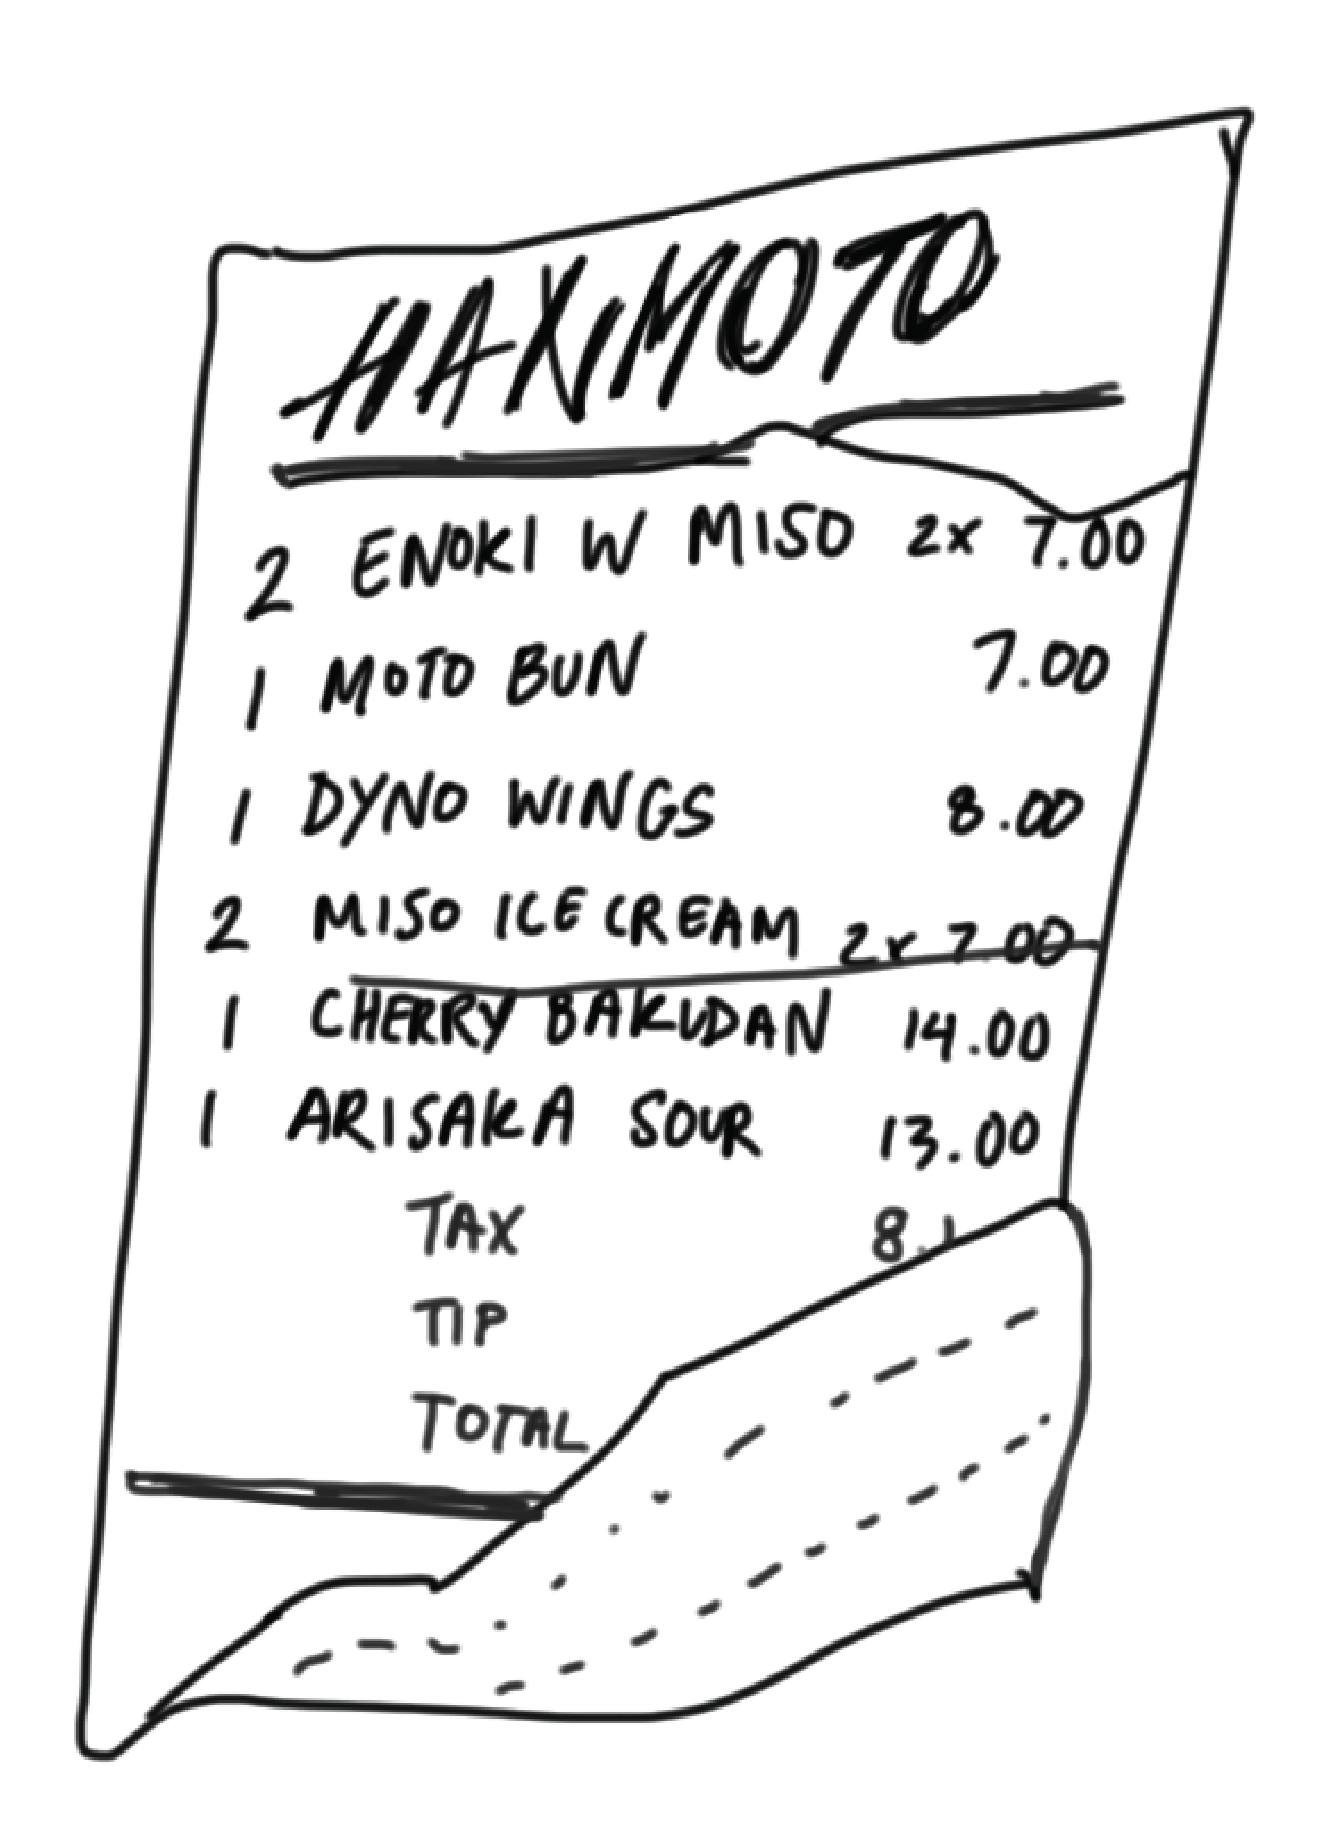 HANMOTO
2 ENOKI W MISO 2x 7.00
1 MOTO BUN 7.00
1 DYNO WINGS 8.00
2 MISO ICE CREAM 2x 7.00
1 CHERRY BAKUDAN 14.00
1 ARISAKA SOUR 13.00
TAX 8.1
TIP
TOTAL